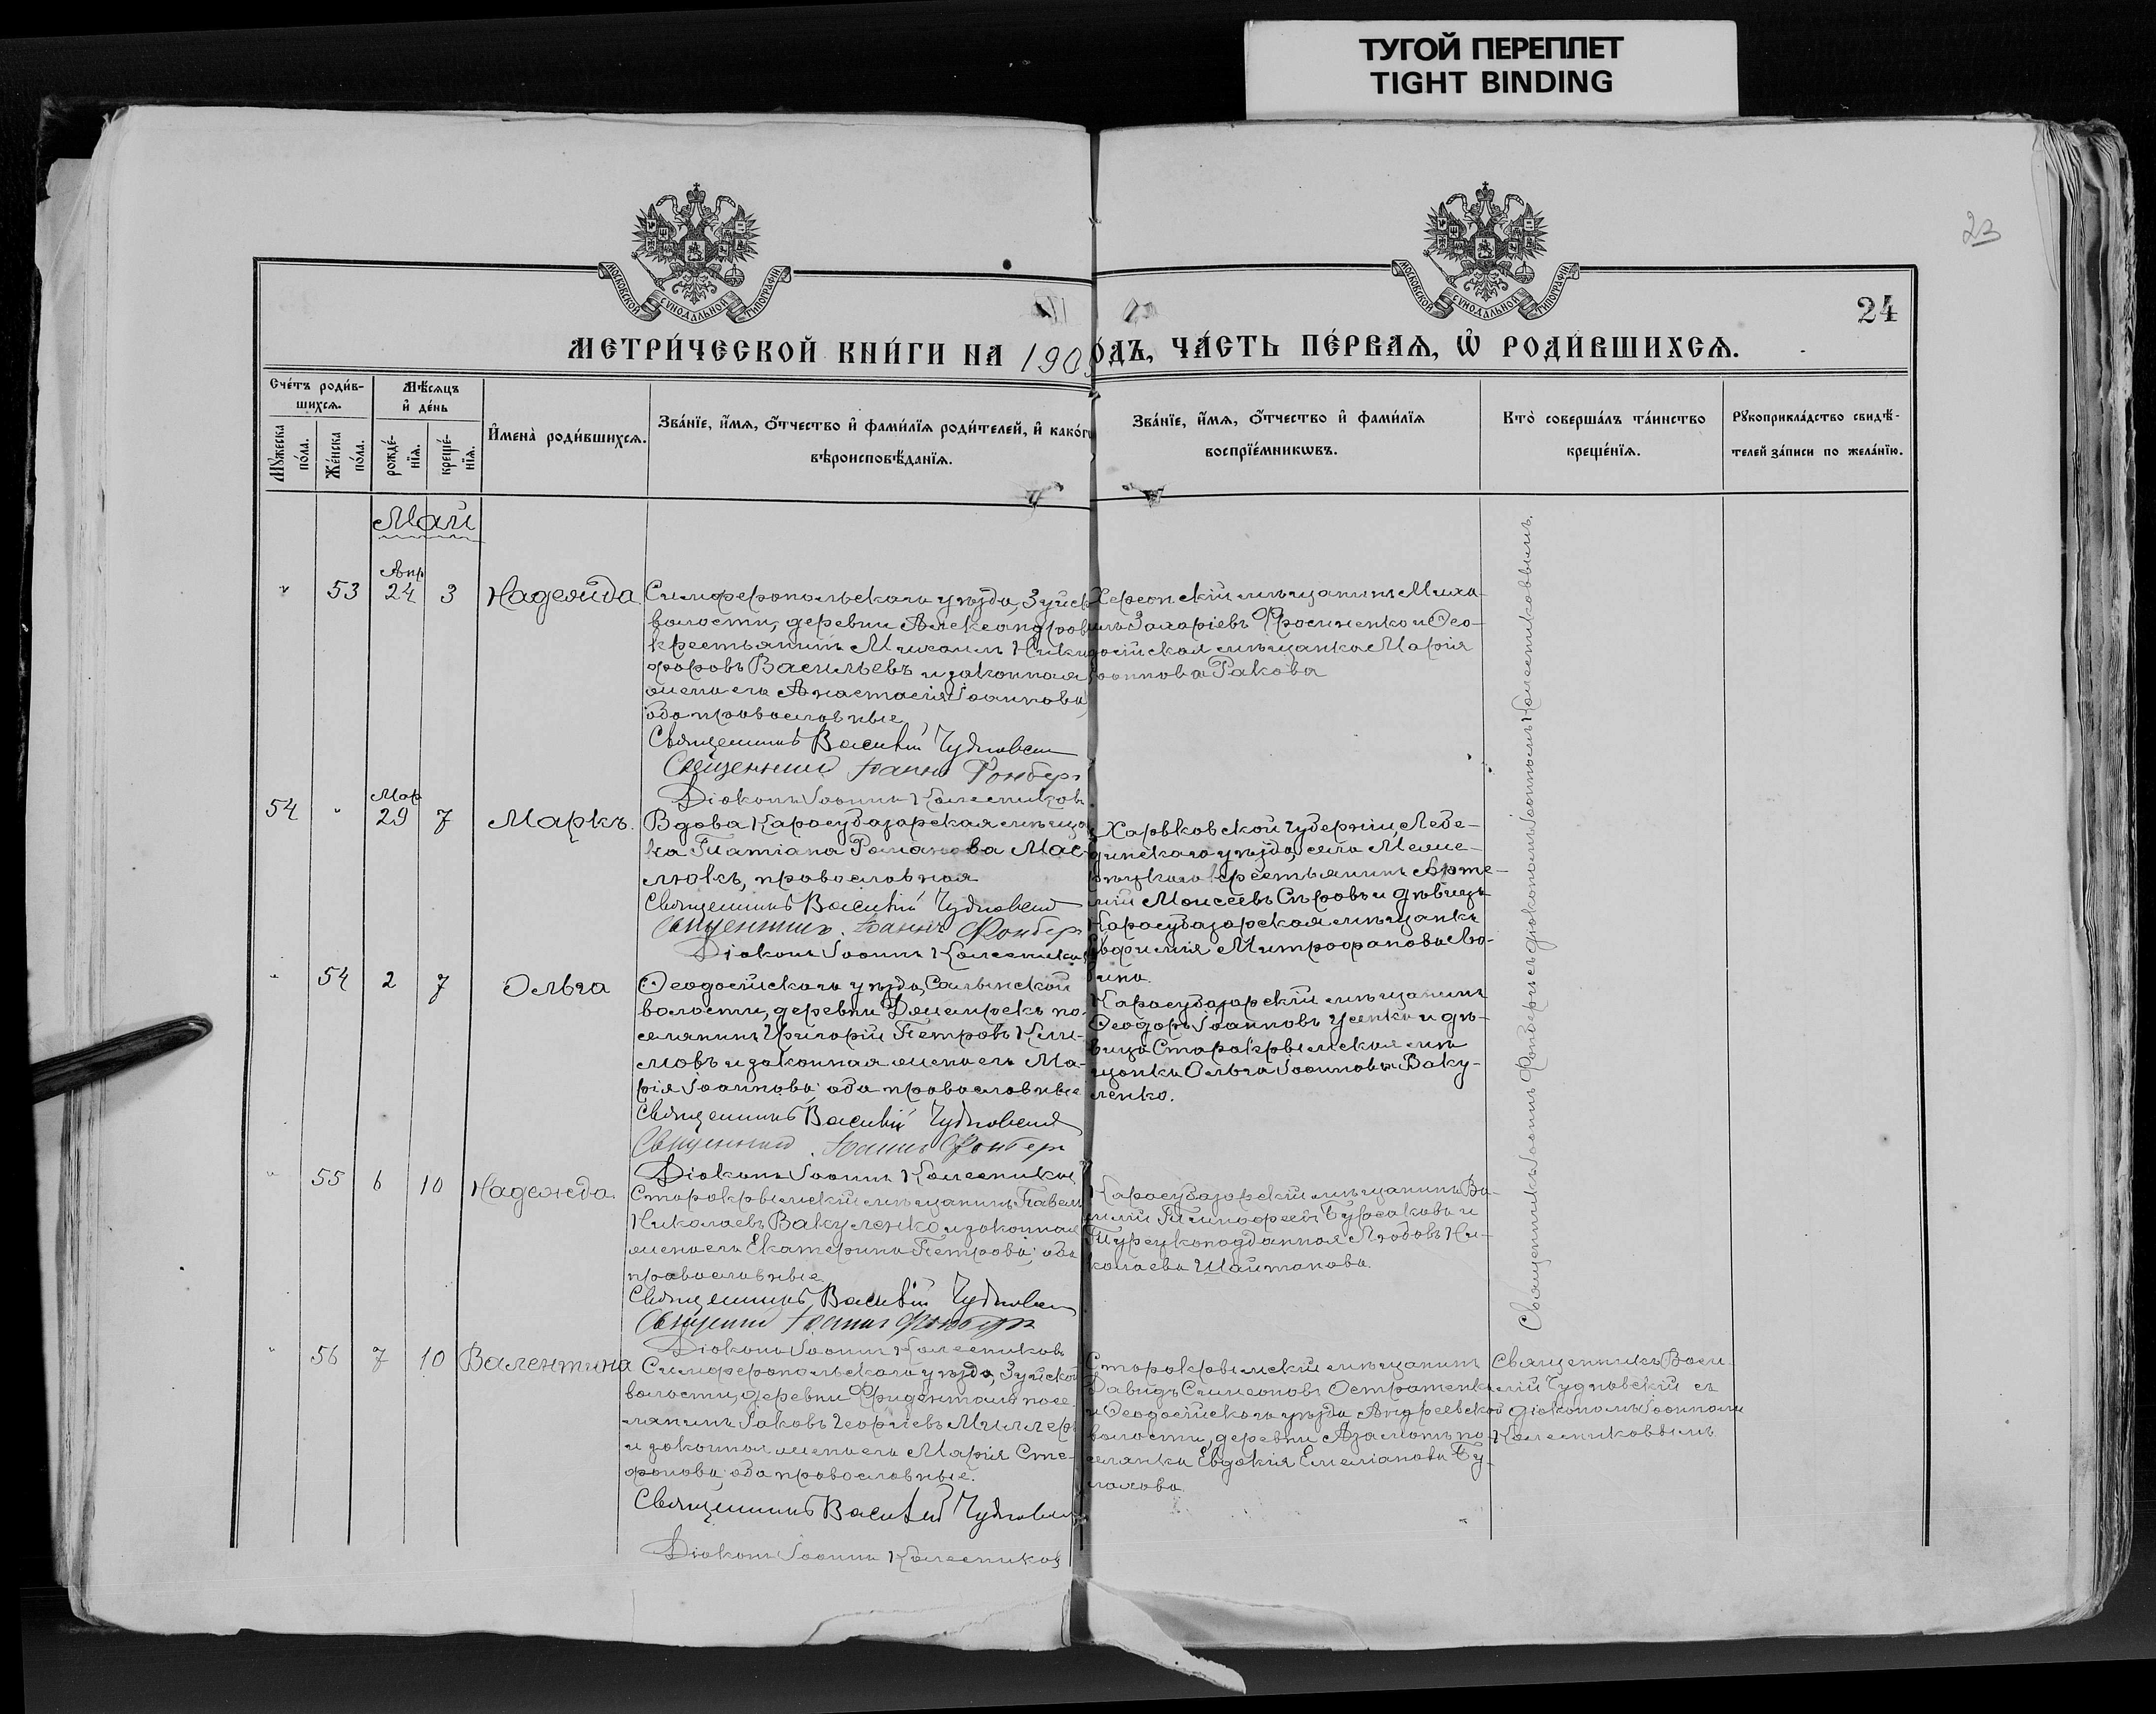 ТУГОЙ ПЕРЕПЛЕТ
TIGHT BINDING
МОСКОВСКОЙ СѴНОДАЛЬНОЙ ТИПОГРАФІИ
МОСКОВСКОЙ СѴНОДАЛЬНОЙ ТИПОГРАФІИ
23
24
МЕТРИ́ЧЕСКОЙ КНИ́ГИ НА 190
О́ДЪ, ЧА́СТЬ ПЕ́РВАѦ, Ѽ РОДИ́ВШИХСѦ.
Сче́тъ роди́в-
шихсѧ.
Мꙋ́жеска
по́ла.
Же́нска
по́ла.
Мѣ́сѧцъ
и҆ де́нь
рожде́-
нїѧ.
креще́-
нїѧ.
И҆мена̀ роди́вшихсѧ.
Зва́нїе, и҆́мѧ, ѻ҆́тчество и҆ фами́лїѧ роди́телей, и҆ како́г
вѣроисповѣ́данїѧ.
Зва́нїе, и҆́мѧ, ѻ҆́тчество и҆ фами́лїѧ
воспрїе́мникѡвъ.
Кто̀ соверша́лъ та́инство
креще́нїѧ.
Рꙋкоприкла́дство свидѣ́-
телей за́писи по жела́нїю.
Май
Апр
" 53 24 3 Надежда
Симферопольскаго уѣзда, Зуйск
волости, деревни Александров
крестьянинъ Михаилъ Ники
форовъ Васильевъ и законная
жена его Анастасія Іоаннова,
оба православные
Священникъ Василій Чудновскі
Священникъ Іоаннъ Фонберг
Діаконъ Іоаннъ Колесниковъ
Херсонскій мѣщанинъ Миха-
илъ Захаріевъ Фросиненко и Ѳео-
досійская мѣщанка Марія
Іоаннова Ракова
54 " Мар 29 7 Маркъ.
Вдова Карасубазарская мѣща
ка Татіана Романова Мас-
люкъ, православная
Священникъ Василій Чудновскій
Священникъ Іоаннъ Фонберг
Діаконъ Іоаннъ Колесников
Харьковской губерніи, Лебе-
динскаго уѣзда, села
крестьянинъ Арте-
мій Моисеевъ Сѣровъ и дѣвица
Карасубазарская мѣщанка
Евфимія Митрофанова Лю-
бина.
" 54 2 7 Ольга
Ѳеодосійскаго уѣзда, Салынской
волости, деревни по-
селянинъ Григорій Петровъ Кли-
мовъ и законная жена его Ма-
рія Іоаннова; оба православные
Священникъ Василій Чудновскій
Священникъ Іоаннъ Фонберг
Діаконъ Іоаннъ Колесников
Карасубазарскій мѣщанинъ
Ѳеодоръ Іоанновъ Усенко и дѣ-
вица Старокрымская мѣ
щанка Ольга Іоаннова Ваку-
ленко.
" 55 6 10 Надежда
Старокрымскій мѣщанинъ Павелъ
Николаевъ Вакуленко и законная
жена его Екатерина Петрова; оба
православные
Священникъ Василій Чудновскі
Священник Іоаннъ Фонбергъ
Діаконъ Іоаннъ Колесниковъ
Карасубазарскій мѣщанинъ Ва-
силій Тимофеевъ Бурсаковъ и
Турецкоподданная Любовь Ни-
колаева Шайтанова.
Священникъ Іоаннъ Фонбергъ съ діакономъ Іоанномъ Колесниковымъ.
" 56 7 10 Валентина
Симферопольскаго уѣзда, Зуйской
волости, деревни Фриденталь посе
лянинъ Іаковъ Георгіевъ Миллеръ
и законная жена его Марія Сте-
фанова; оба православные.
Священникъ Василій Чудновскі
Діаконъ Іоаннъ Колесников
Старокрымскій мѣщанинъ
Давидъ Симеоновъ Остратенко
и Ѳеодосійскаго уѣзда Андреевской
волости, деревни Азаматъ по-
селянка Евдокія Емеліанова Бу-
лахова
Священникъ Васи-
лій Чудновскій съ
діакономъ Іоанномъ
Колесниковымъ